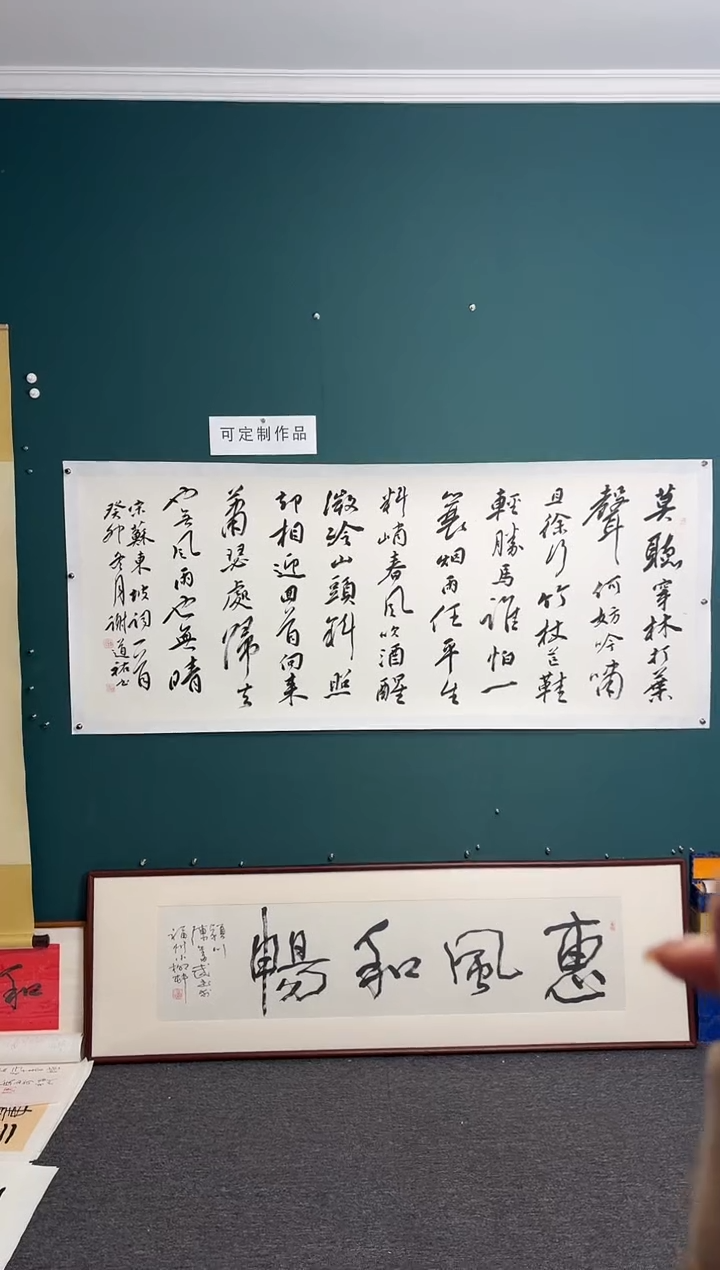 可定制作品
莫聽穿林打葉
聲何妨吟嘯
且徐行竹杖芒鞋
輕勝馬誰怕一
蓑烟雨任平生
料峭春風吹酒醒
微冷山頭斜照
却相迎回首向来
蕭瑟處歸去
也無風雨也無晴
宋蘇東坡詞一首
癸卯冬月謝道祐書
惠風和暢
和